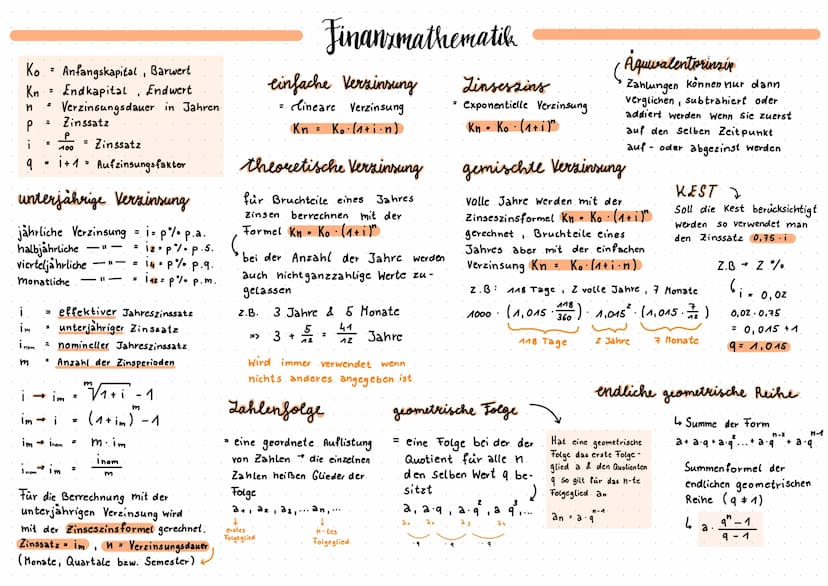 Finanzmathematik
K₀ = Anfangskapital, Barwert
Kn = Endkapital, Endwert
n = Verzinsungsdauer in Jahren
p = Zinssatz
i = p/100 = Zinssatz
q = i+1 = Aufzinsungsfaktor
einfache Verzinsung
= lineare Verzinsung
Kn = K₀·(1+i·n)
Zinseszins
= Exponentielle Verzinsung
Kn = K₀·(1+i)ⁿ
Äquivalentprinzip
Zahlungen können nur dann
verglichen, subtrahiert oder
addiert werden wenn sie zuerst
auf den selben Zeitpunkt
auf- oder abgezinst werden
unterjährige Verzinsung
jährliche Verzinsung = i = p% p.a.
halbjährliche —"— = i₂ = p% p.s.
vierteljährliche —"— = i₄ = p% p.q.
monatliche —"— = i₁₂ = p% p.m.
i = effektiver Jahreszinssatz
im = unterjähriger Zinssatz
inom = nomineller Jahreszinssatz
m = Anzahl der Zinsperioden
i → im = ᵐ√1+i - 1
im → i = (1+im)ᵐ - 1
im → inom = m·im
inom → im = inom/m
Für die Berrechnung mit der
unterjährigen Verzinsung wird
mit der Zinseszinsformel gerechnet.
Zinssatz = im, n = Verzinsungsdauer
(Monate, Quartale bzw. Semester)
theoretische Verzinsung
für Bruchteile eines Jahres
zinsen berrechnen mit der
Formel Kn = K₀·(1+i)ⁿ
bei der Anzahl der Jahre werden
auch nicht ganzzahlige Werte zu-
gelassen
z.B. 3 Jahre & 5 Monate
=> 3 + 5/12 = 41/12 Jahre
Wird immer verwendet wenn
nichts anderes angegeben ist
gemischte Verzinsung
volle Jahre werden mit der
Zinseszinsformel Kn = K₀·(1+i)ⁿ
gerechnet, Bruchteile eines
Jahres aber mit der einfachen
Verzinsung Kn = K₀·(1+i·n)
z.B: 118 Tage, 2 volle Jahre, 7 Monate
1000 · (1,015 · 118/360) · 1,015² · (1,015 · 7/12)
118 Tage 2 Jahre 7 Monate
KEST
Soll die Kest berücksichtigt
werden so verwendet man
den Zinssatz 0,75·i
Z.B → 2%
i = 0,02
0,02·0,75
= 0,015 +1
q = 1,015
Zahlenfolge
= eine geordnete Auflistung
von Zahlen → die einzelnen
Zahlen heißen Glieder der
Folge
a₁, a₂, a₃,... an,...
erstes Folgeglied
n-tes Folgeglied
geometrische Folge
= eine Folge bei der der
Quotient für alle n
den selben Wert q be-
sitzt
a, a·q, a·q², a q³,...
a₁ a₂ a₃ a₄
·q ·q ·q
Hat eine geometrische
Folge das erste Folge-
glied a & den Quotienten
q so gilt für das n-te
Folgeglied an
an = a·qⁿ⁻¹
endliche geometrische Reihe
↳ Summe der Form
a+a·q+a·q²...+a·qⁿ⁻²+a·qⁿ⁻¹
Summenformel der
endlichen geometrischen
Reihe (q ≠ 1)
↳ a · qⁿ-1/q-1